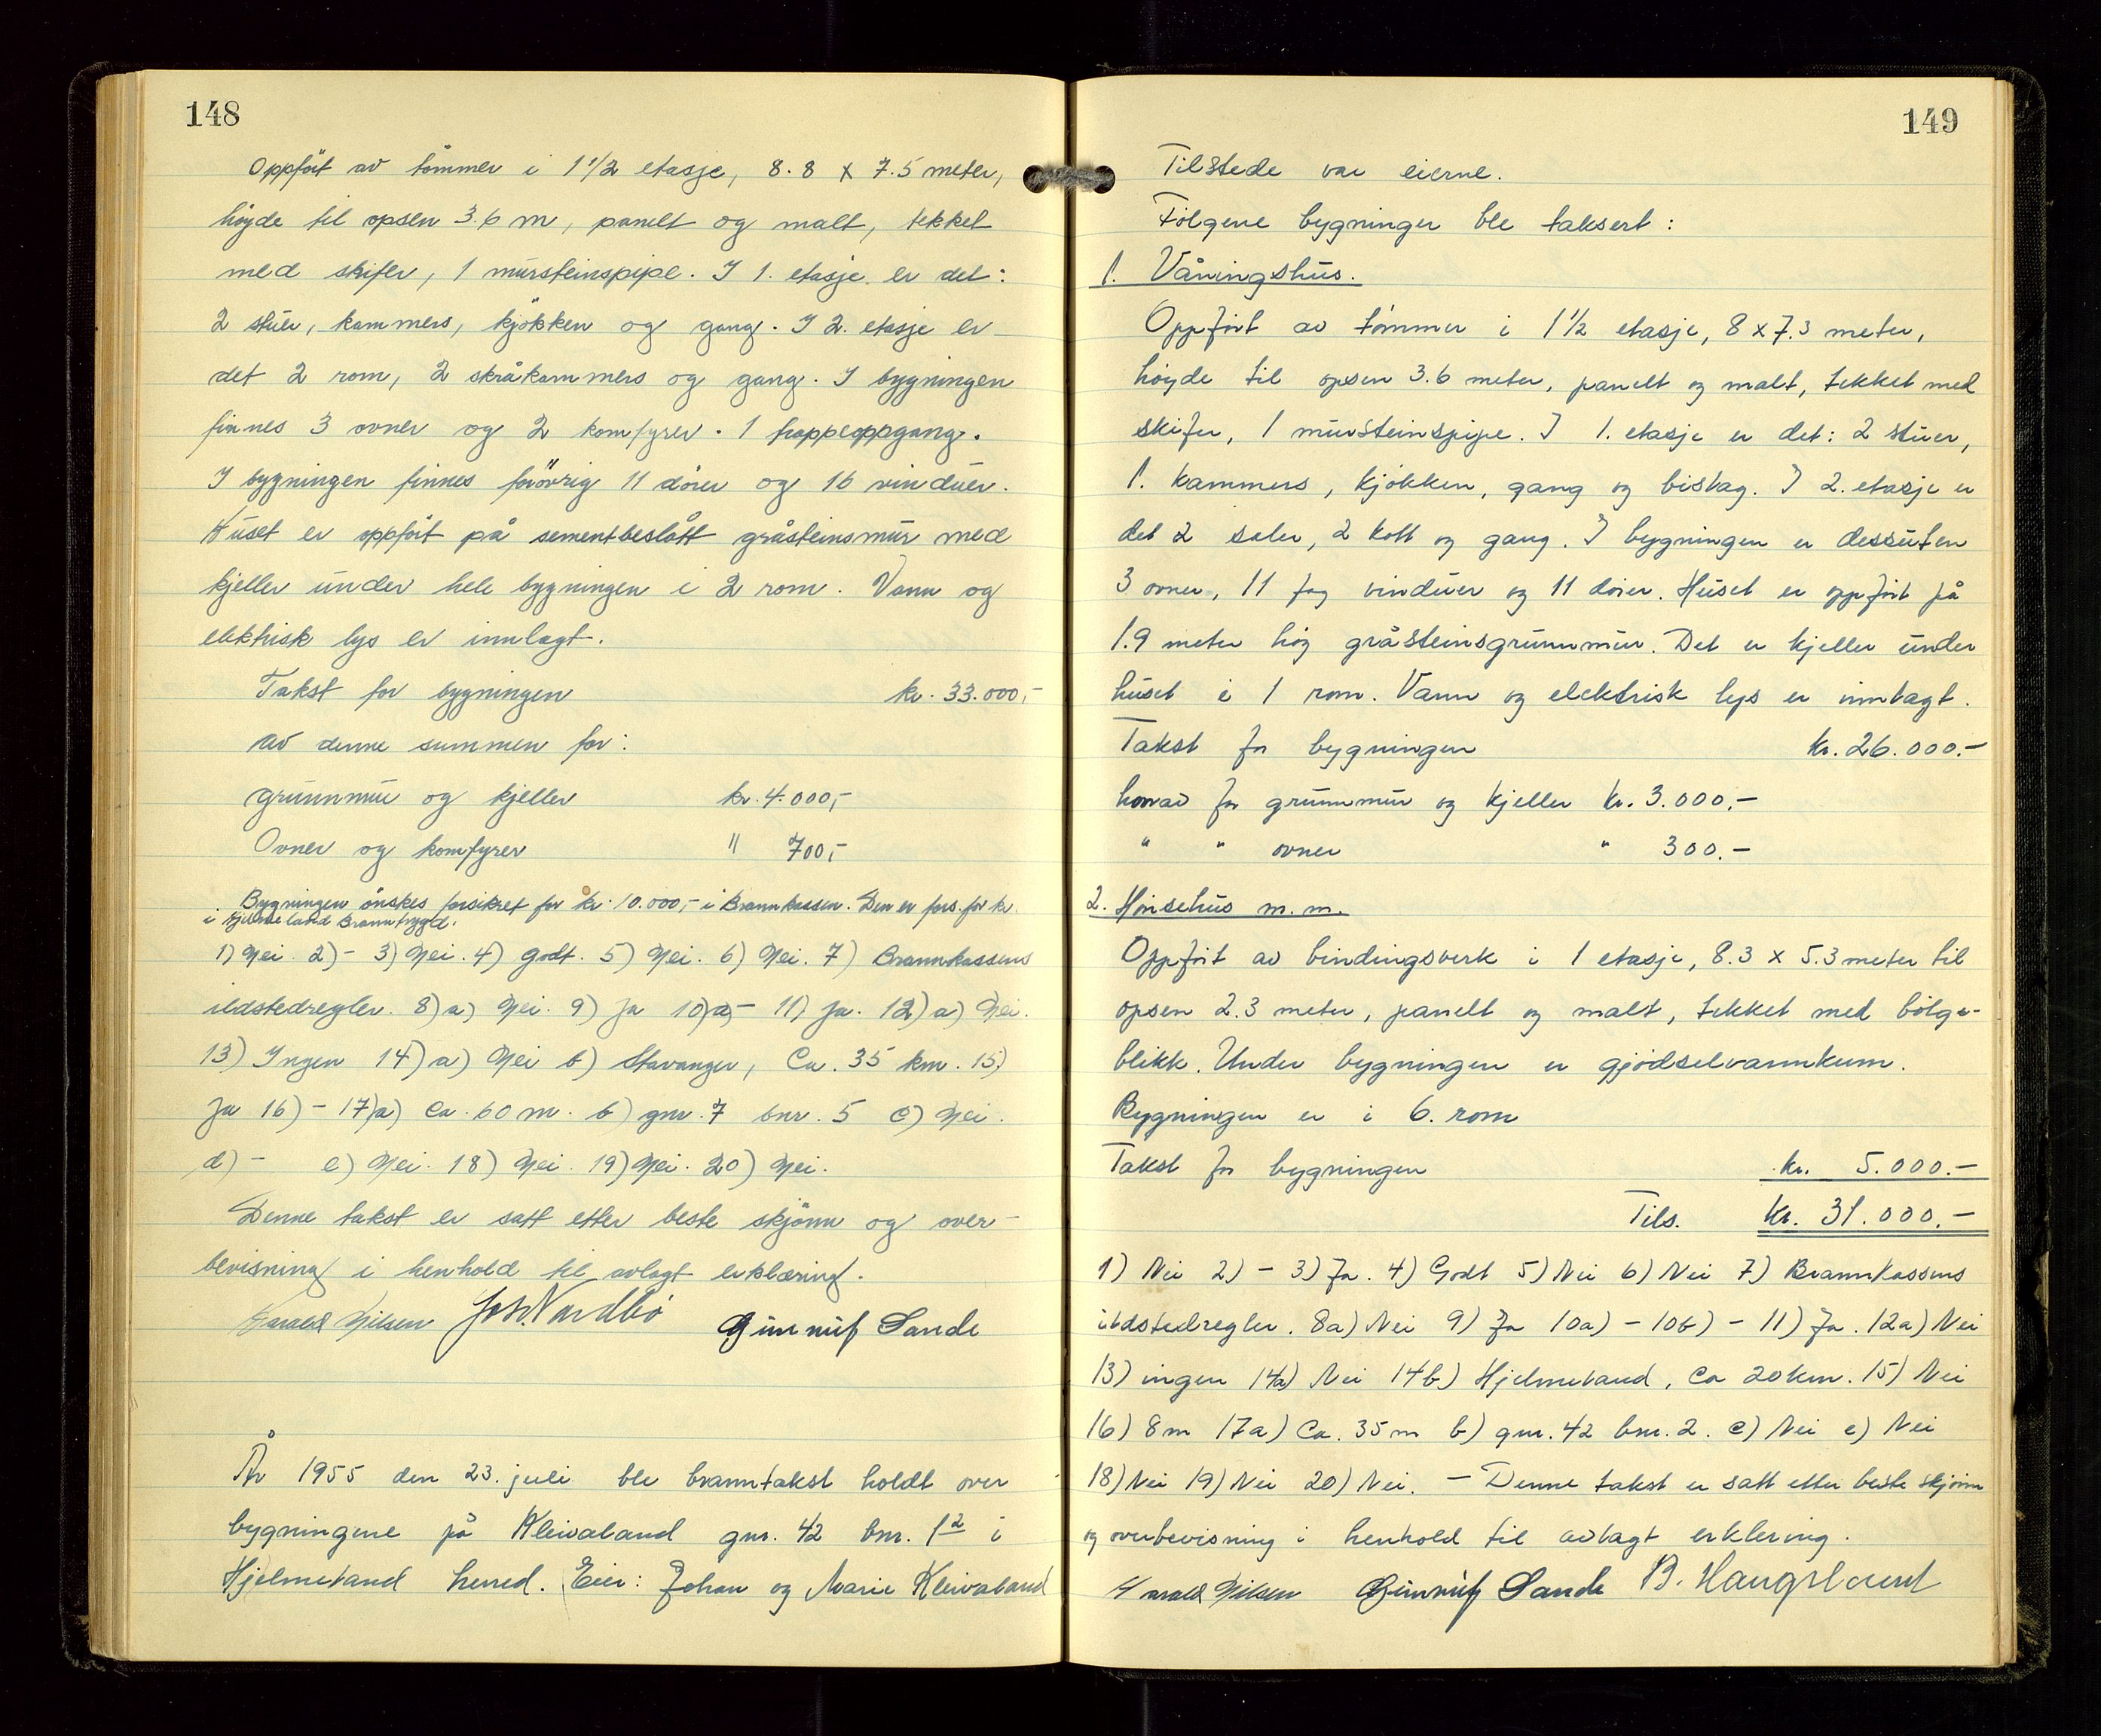 148
Oppfört av tömmer i 1 1/2 etasje, 8.8 x 7.5 meter,
höyde til opsen 3.6 m, panelt og malt, tekket
med skifer, 1 mursteinspipe. I 1. etasje er det:
2 stuer, kammers, kjökken og gang. I 2. etasje er
det 2 rom, 2 skråkammers og gang. I bygningen
finnes 3 ovner og 2 komfyrer. 1 trappeoppgang.
I bygningen finnes forövrig 11 dörer og 16 vinduer.
Huset er oppfört på sementbeslått gråsteinsmur med
kjeller under hele bygningen i 2 rom. Vann og
elektrisk lys er innlagt.
Takst for bygningen kr. 33.000,-
av denne summen for:
grunnmur og kjeller kr. 4.000,-
Ovner og komfyrer " 700,-
Bygningen önskes forsikret for kr. 10.000,- i Brannkassen. Den er fors. for kr.
i Hjelmeland Branntrygd.
1) Nei. 2) - 3) Nei. 4) godt. 5) Nei. 6) Nei. 7) Brannkassens
ildstedregler. 8) a) Nei. 9) Ja 10) a) - 11) Ja. 12) a) Nei.
13) Ingen 14) a) Nei b) Stavanger, Ca. 35 km. 15)
Ja 16) - 17) a) Ca. 60 m. b) gnr. 7 bnr. 5 c) Nei.
d) - e) Nei. 18) Nei. 19) Nei. 20) Nei.
Denne takst er satt etter beste skjönn og over-
bevisning i henhold til avlagt erklæring.
Harald Nilsen Joh. Nordbö Gunnulf Sande
År 1955 den 23. juli ble branntakst holdt over
bygningene på Kleivaland gnr. 42 bnr. 1 2 i
Hjelmeland herred. Eier: Johan og Marie Kleivaland
149
Tilstede var eierne.
Fölgene bygninger ble taksert:
1. Våningshus.
Oppfört av tömmer i 1 1/2 etasje, 8 x 7.3 meter,
höyde til opsen 3.6 meter, panelt og malt, tekket med
skifer, 1 mursteinspipe. I 1. etasje er det: 2 stuer,
1. kammers, kjökken, gang og bislag. I 2. etasje er
det 2 saler, 2 kott og gang. I bygningen er dessuten
3 ovner, 11 fag vinduer og 11 dörer. Huset er oppfört på
1.9 meter höy gråsteinsgrunnmur. Det er kjeller under
huset i 1 rom. Vann og elektrisk lys er innlagt.
Takst for bygningen kr. 26.000.-
horav for grunnmur og kjeller kr. 3.000.-
" " ovner " 300.-
2. Hönsehus m.m.
Oppfört av bindingsverk i 1 etasje, 8.3 x 5.3 meter til
opsen 2.3 meter, panelt og malt, tekket med bölge-
blikk. Under bygningen er gjödselvannkum.
Bygningen er i 6. rom
Takst for bygningen kr. 5.000.-
Tils. kr. 31.000.-
1) Nei 2) - 3) Ja. 4) Godt 5) Nei 6) Nei 7) Brannkassens
ildstedregler. 8a) Nei 9) Ja 10a) - 10b) - 11) Ja. 12a) Nei
13) ingen 14a) Nei 14b) Hjelmeland, Ca 20 km. 15) Nei
16) 8 m 17a) Ca. 35 m b) gnr. 42 bnr. 2. c) Nei e) Nei
18) Nei 19) Nei 20) Nei. - Denne takst er satt etter beste skjönn
og overbevisning i henhold til avlagt erklering.
Harald Nilsen Gunnulf Sande B. Haugsland